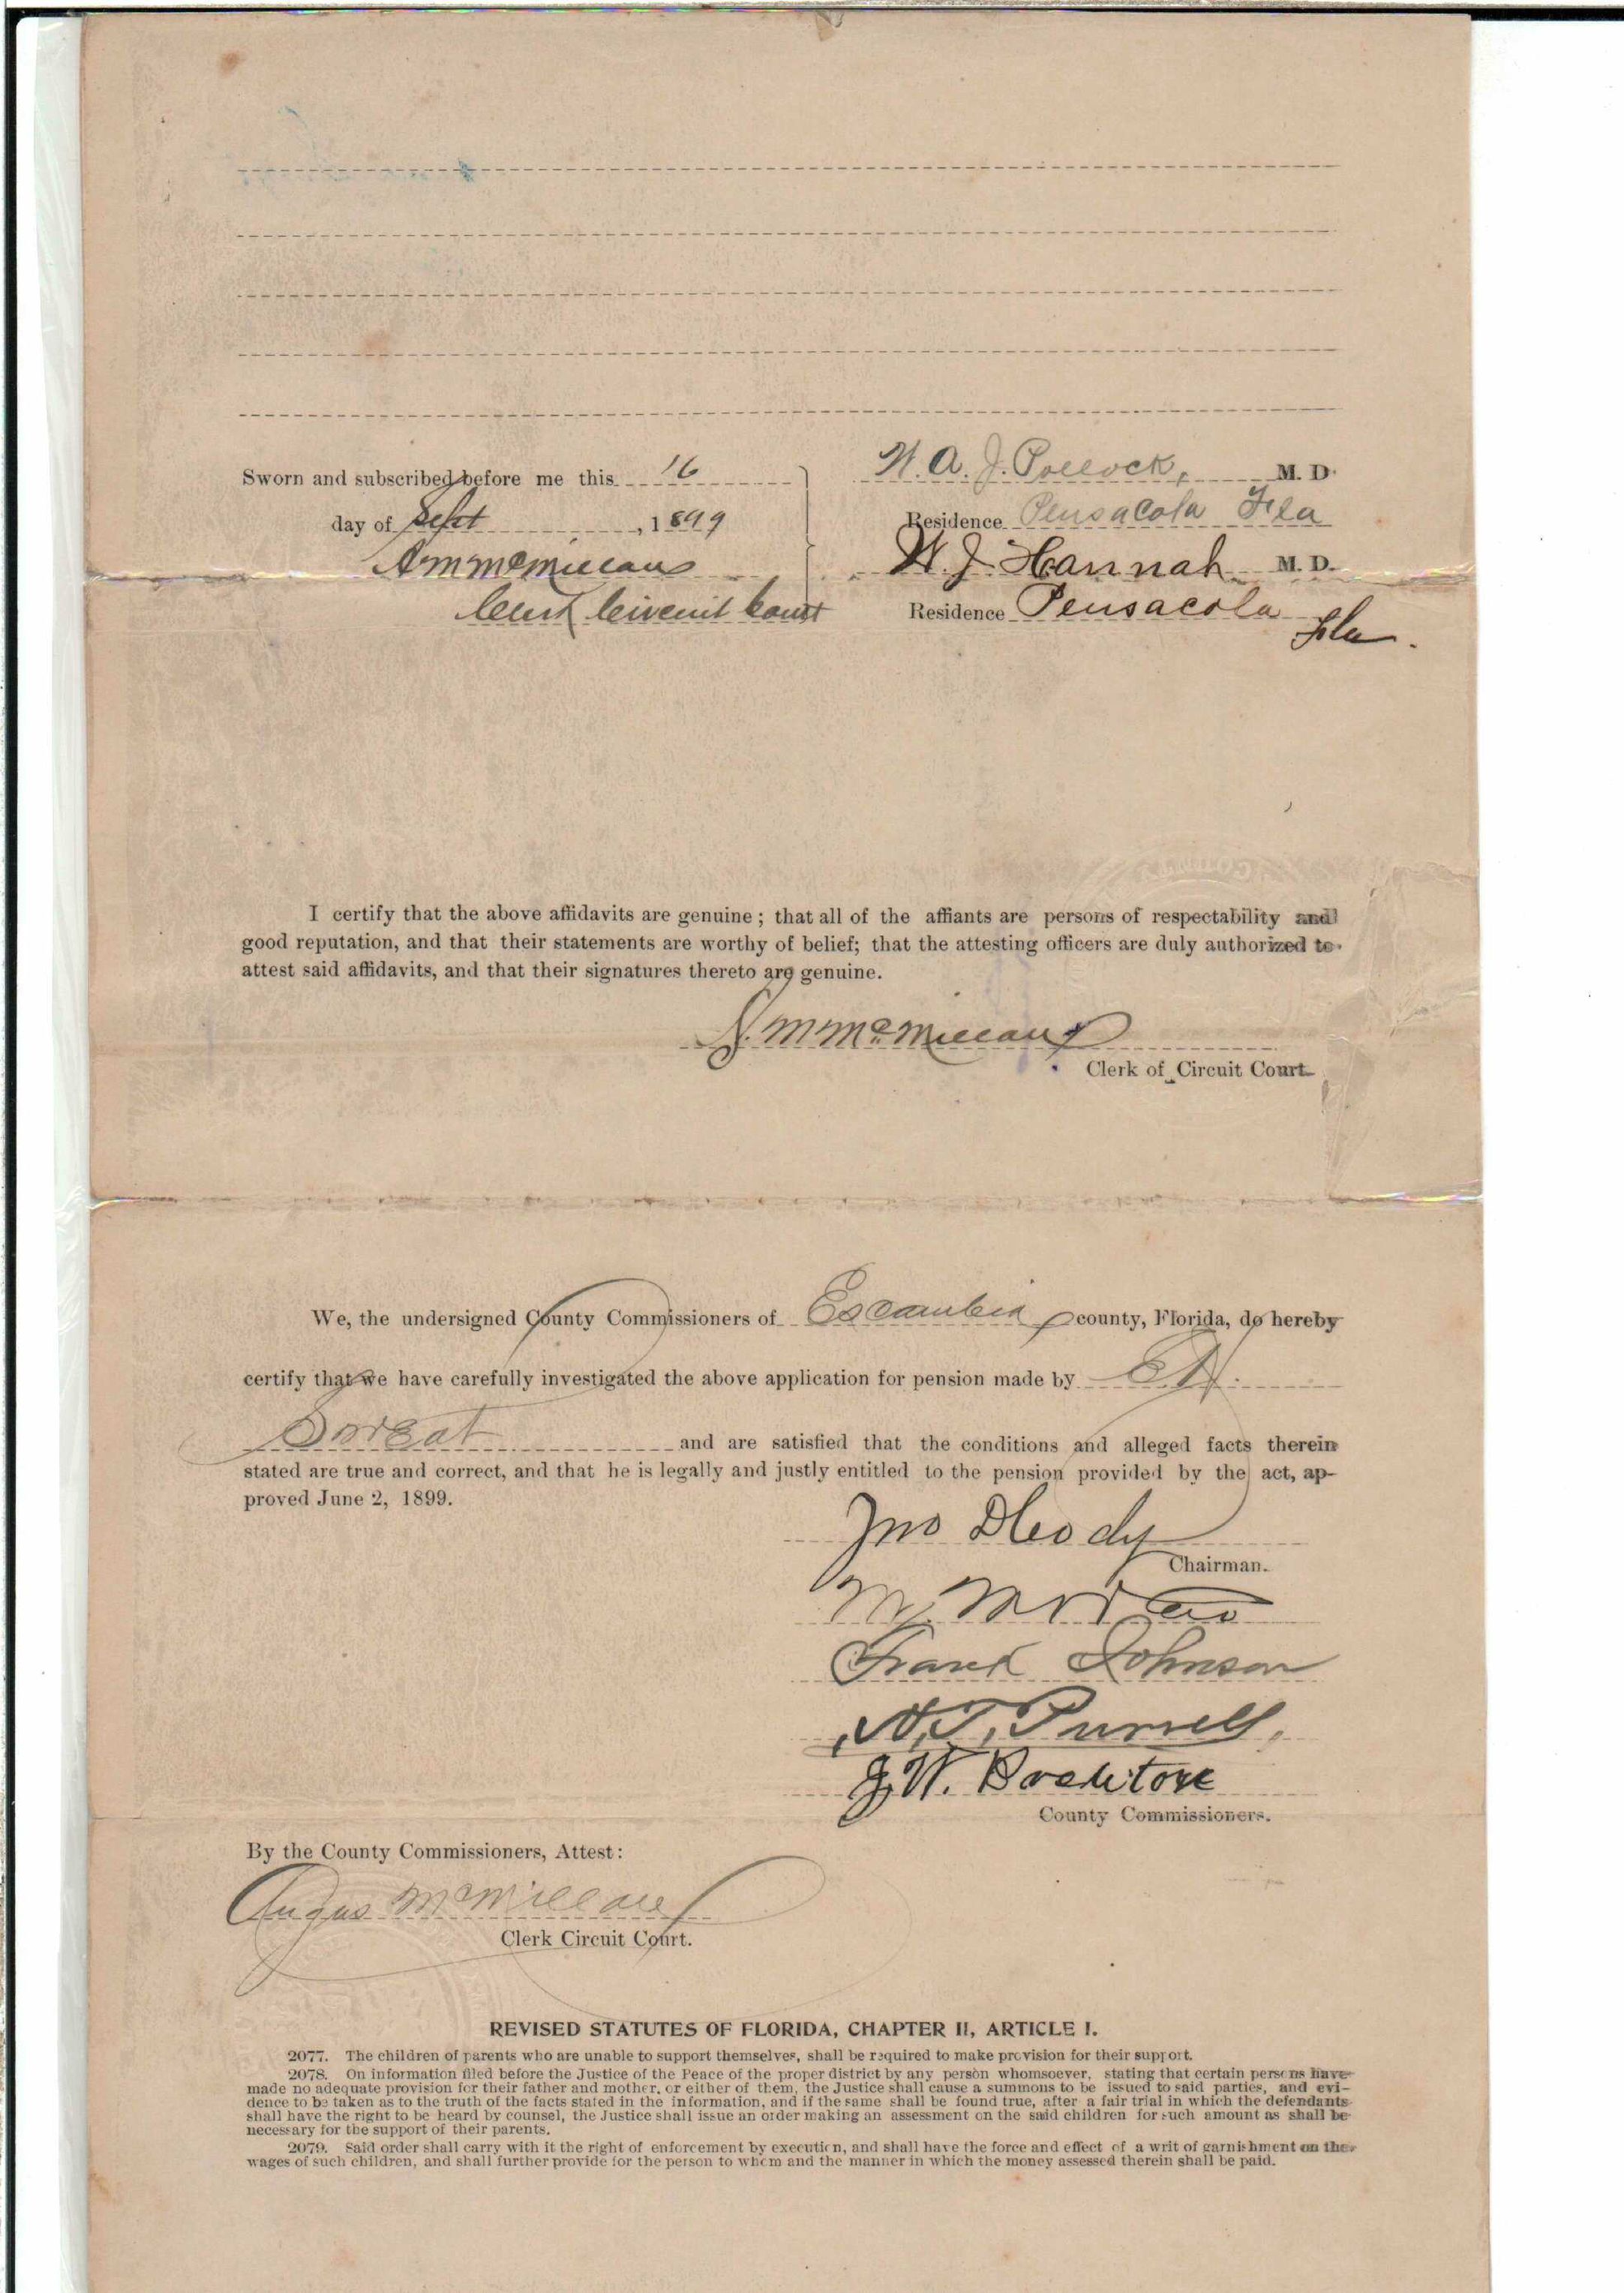 Sworn and subscribed before me this 16
day of Sept, 1899
A M McMillan
Clerk Circuit Court
W. A. J. Pollock, M. D.
Residence Pensacola Fla
W. J. Hannah M. D.
Residence Pensacola Fla.
I certify that the above affidavits are genuine; that all of the affiants are persons of respectability and
good reputation, and that their statements are worthy of belief; that the attesting officers are duly authorized to
attest said affidavits, and that their signatures thereto are genuine.
A. M McMillan
Clerk of Circuit Court
We, the undersigned County Commissioners of Escambia county, Florida, do hereby
certify that we have carefully investigated the above application for pension made by
and are satisfied that the conditions and alleged facts therein
stated are true and correct, and that he is legally and justly entitled to the pension provided by the act, ap-
proved June 2, 1899.
Jno
Chairman.
Frank Johnson
County Commissioners.
By the County Commissioners, Attest:
Angus McMillan
Clerk Circuit Court.
REVISED STATUTES OF FLORIDA, CHAPTER II, ARTICLE I.
2077. The children of parents who are unable to support themselves, shall be required to make provision for their support.
2078. On information filed before the Justice of the Peace of the proper district by any person whomsoever, stating that certain persons have
made no adequate provision for their father and mother, or either of them, the Justice shall cause a summons to be issued to said parties, and evi-
dence to be taken as to the truth of the facts stated in the information, and if the same shall be found true, after a fair trial in which the defendants
shall have the right to be heard by counsel, the Justice shall issue an order making an assessment on the said children for such amount as shall be
necessary for the support of their parents.
2079. Said order shall carry with it the right of enforcement by execution, and shall have the force and effect of a writ of garnishment on the
wages of such children, and shall further provide for the person to whom and the manner in which the money assessed therein shall be paid.